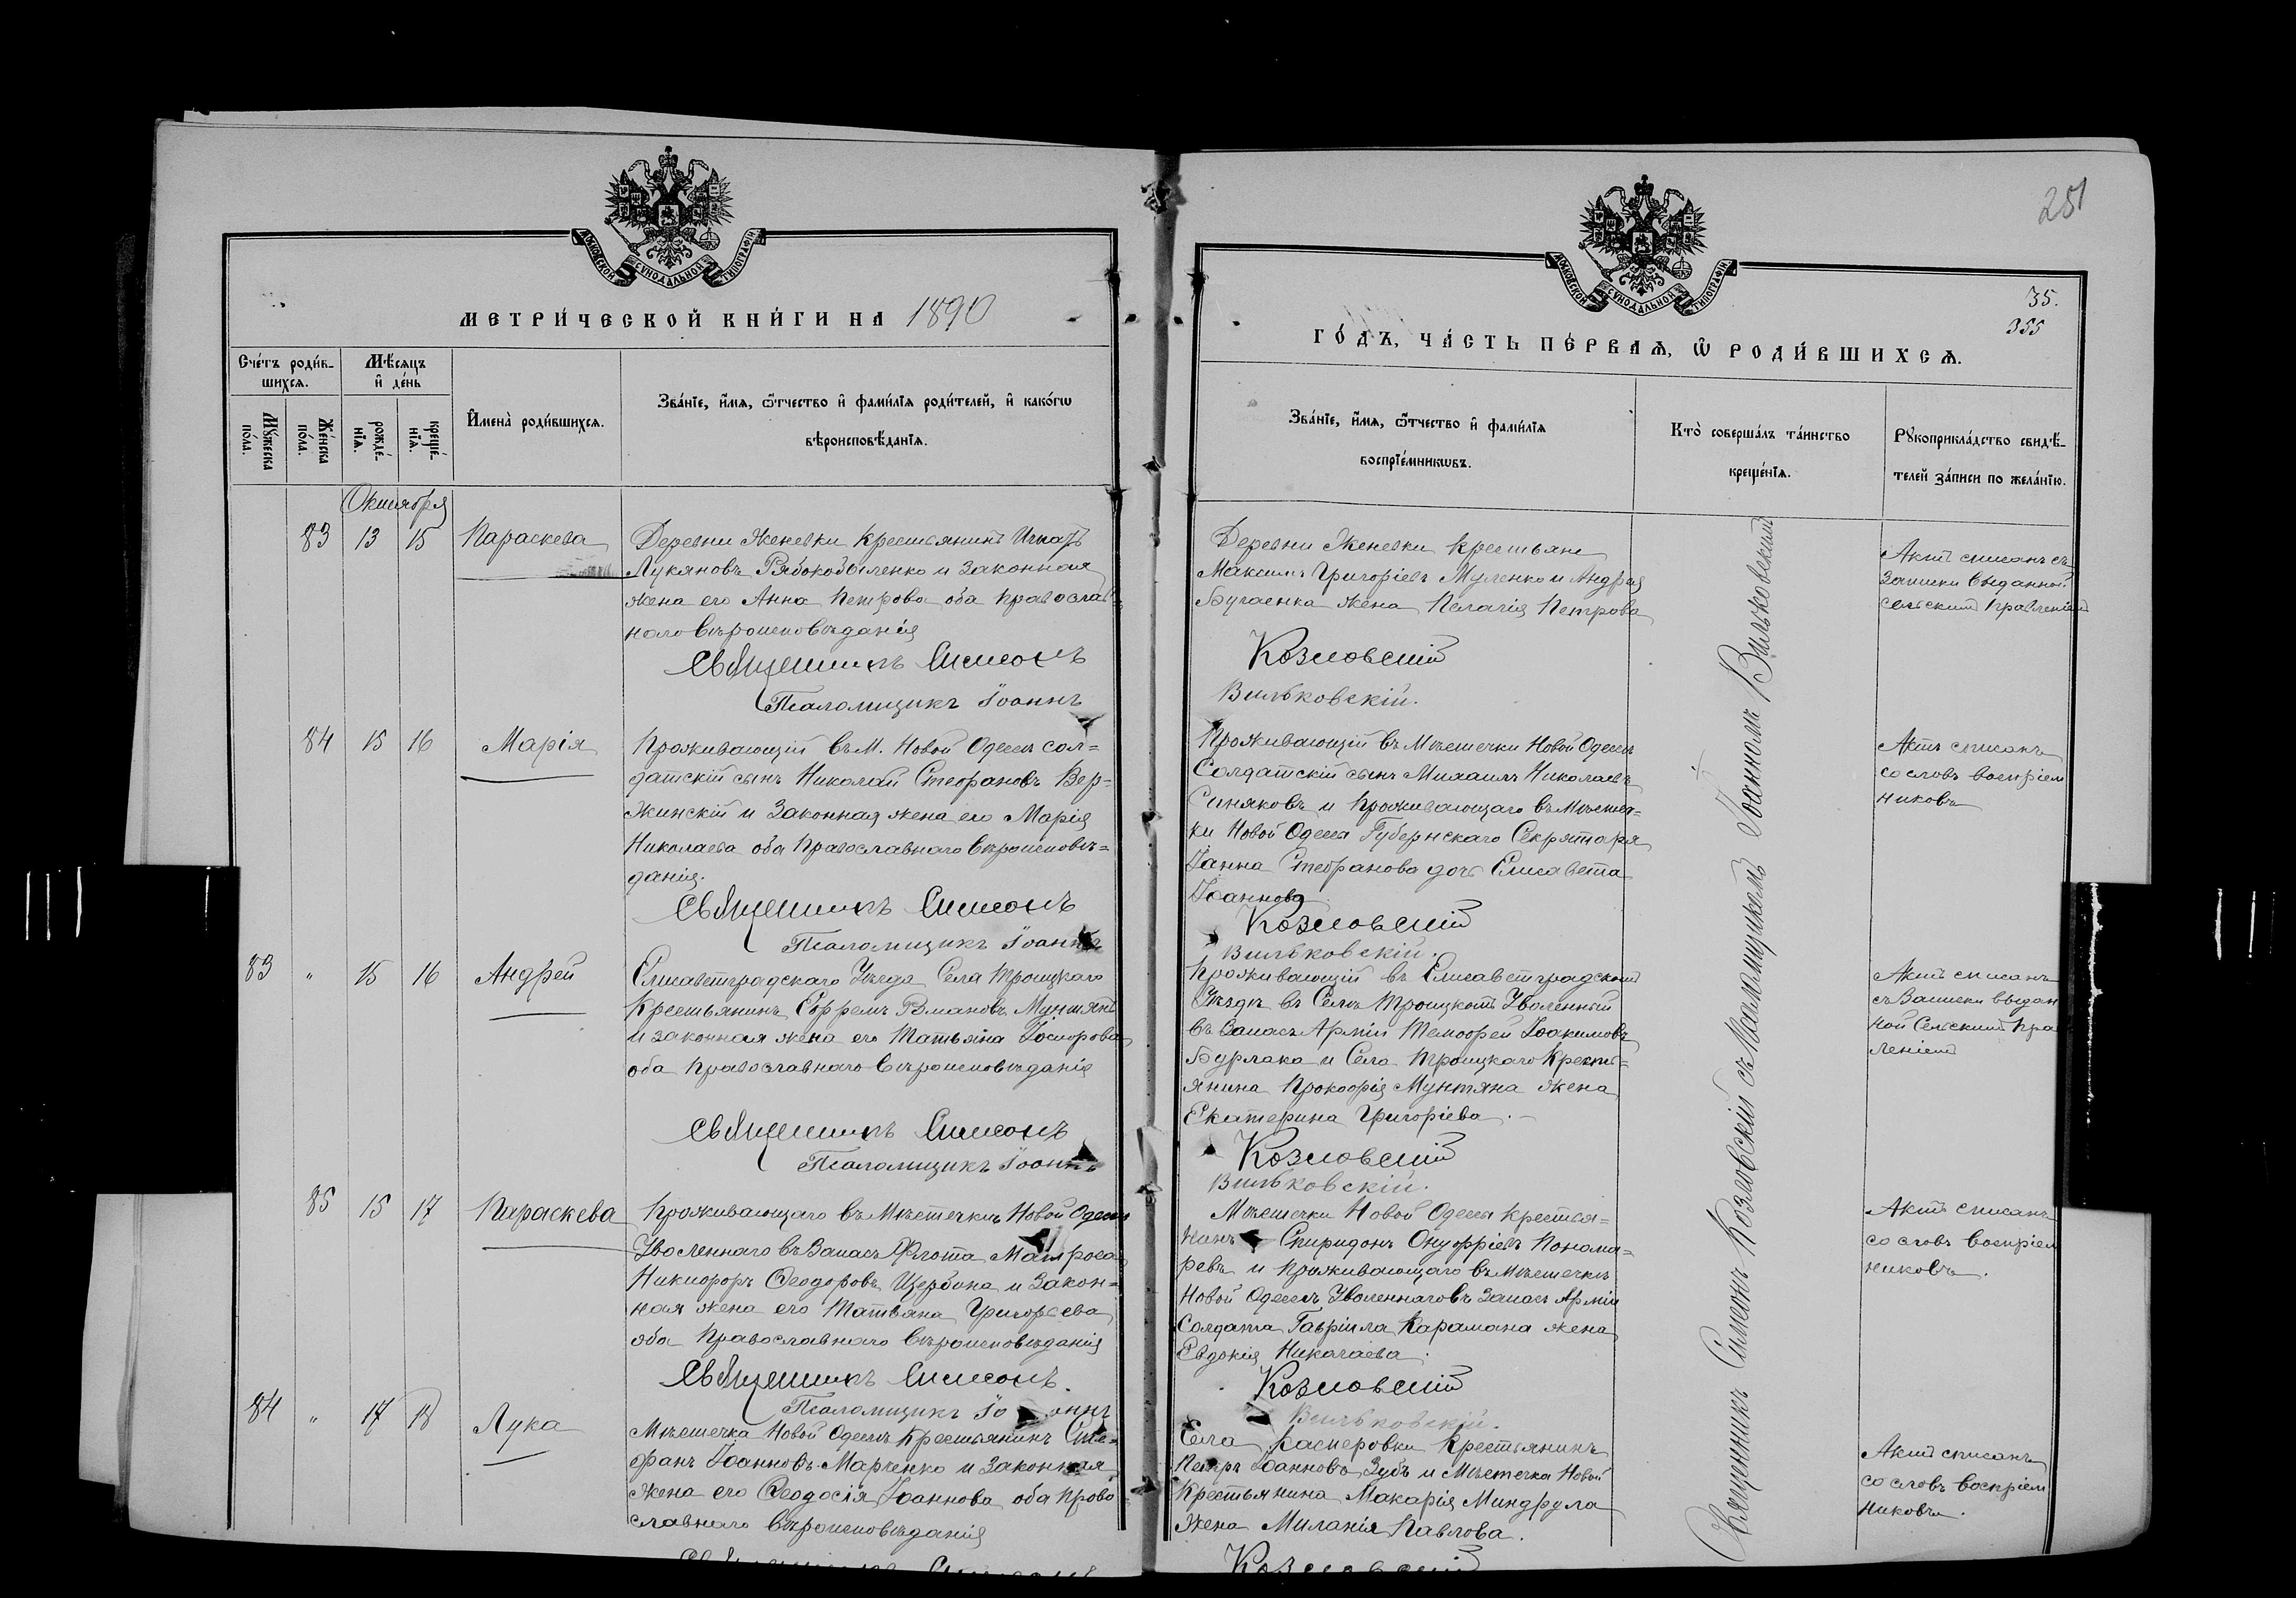 251
МОСКОВСКОЙ СѴНОДАЛЬНОЙ ТИПОГРАФІИ
МЕТРИ́ЧЕСКОЙ КНИ́ГИ НА 1890
Сче́тъ роди́в-
шихсѧ.
Мѣ́сѧцъ
и҆ де́нь
Мꙋ́жеска
по́ла.
Же́нска
по́ла.
рожде́-
нїѧ.
креще́-
нїѧ.
И҆мена̀ роди́вшихсѧ.
Зва́нїе, и҆́мѧ, ѻ҆́тчество и҆ фами́лїѧ роди́телей, и҆ како́гѡ
вѣроисповѣ́данїѧ.
Октября
83 13 15 Параскева
Деревни Женевки крестьянинъ Игнатъ
Лукяновъ Рябокобыленко и законная
жена его Анна Петрова оба Православ-
наго вѣроисповѣданія
Священникъ Симеонъ
Псаломщикъ Іоаннъ
84 15 16 Марія
Проживающій въ М. Новой Одессѣ сол=
датскій сынъ Николай Стефановъ Вер=
жинскій и Законная жена его Марія
Николаева оба Православнаго вѣроисповѣ=
данія.
Священникъ Симеонъ
Псаломщикъ Іоаннъ
83 " 15 16 Андрей
Елисаветградскаго Уѣзда Села Троицкаго
Крестьянинъ Ефремъ Романовъ Мунтянъ
и законная жена его Татьяна Іосифова
оба Православнаго вѣроисповѣданія
Священникъ Симеонъ
Псаломщикъ Іоаннъ
85 15 17 Параскева
Проживающаго въ Мѣстечкѣ Новой Одессѣ
Уволеннаго въ Запасъ Флота Матроса
Никифоръ Феодоровъ Щербина и Закон=
ная жена его Татьяна Григорьева
оба Православнаго вѣроисповѣданія
Священникъ Симеонъ.
Псаломщикъ Іоаннъ
84 " 17 18 Лука
Мѣстечка Новой Одессы Крестьянинъ Сте=
фанъ Іоанновъ Марченко и законная
жена его Феодосія Іоаннова оба Право
славнаго вѣроисповѣданія
Священникъ Симеонъ
МОСКОВСКОЙ СѴНОДАЛЬНОЙ ТИПОГРАФІИ
35.
355
ГО́ДЪ, ЧА́СТЬ ПЕ́РВАѦ, Ѡ҆ РОДИ́ВШИХСѦ.
Зва́нїе, и҆́мѧ, ѻ҆́тчество и҆ фами́лїѧ
воспрїе́мникѡвъ.
Кто̀ соверша́лъ та́инство
креще́нїѧ.
Рꙋкоприкла́дство свидѣ́-
телей за́писи по жела́нїю.
Деревни Женевки крестьяне
Максимъ Григоріевъ Муленко и Андрея
Бугаенка жена Пелагія Петрова
Козловскій
Вильковскій.
Актъ списанъ съ
Записки выданной
сельскимъ правленіемъ
Проживающій въ Мѣстечки Новой Одессѣ
Солдатскій сынъ Михаилъ Николаевъ
Синяковъ и проживающаго въ Мѣстеч-
ки Новой Одесса Губернскаго Секрятаря
Іоанна Стефанова дочь Елисавета
Іоаннова
Козловскій
Вильковскій.
Актъ списанъ
со словъ воспріем
никовъ
Проживающій въ Елисаветградскомъ
Уѣздѣ въ Селѣ Троицкомъ Уволенный
въ Запасъ Арміи Темофей Іоакимовъ
Бурлака и Села Троицкаго Кресть=
янина Прокофія Мунтяна жена
Екатерина Григоріева.
Козловскій
Вильковскій.
Актъ списанъ
съ Записки выдан
ной Сельскимъ Пра
леніемъ
Мѣстечки Новой Одесса Крестья=
нинъ Спиридонъ Онуфріевъ Понома=
ревъ и проживающаго въ Мѣстечкѣ
Новой Одессѣ Уволеннаго въ Запасъ Арміи
Солдата Гавріила Карамана жена
Евдокія Николаева.
Козловскій
Вильковскій.
Актъ списанъ
со словъ воспріем
никовъ.
Села Касперовки Крестьянинъ
Петръ Іоанновъ Зубъ и Мѣстечка Новой
Крестьянина Макарія Миндрула
жена Миланія Павлова.
Козловскій
Актъ списанъ
со словъ воспріем
никовъ.
Священникъ Симеонъ Козловскій съ Псаломщикомъ Іоанномъ Вильковскимъ